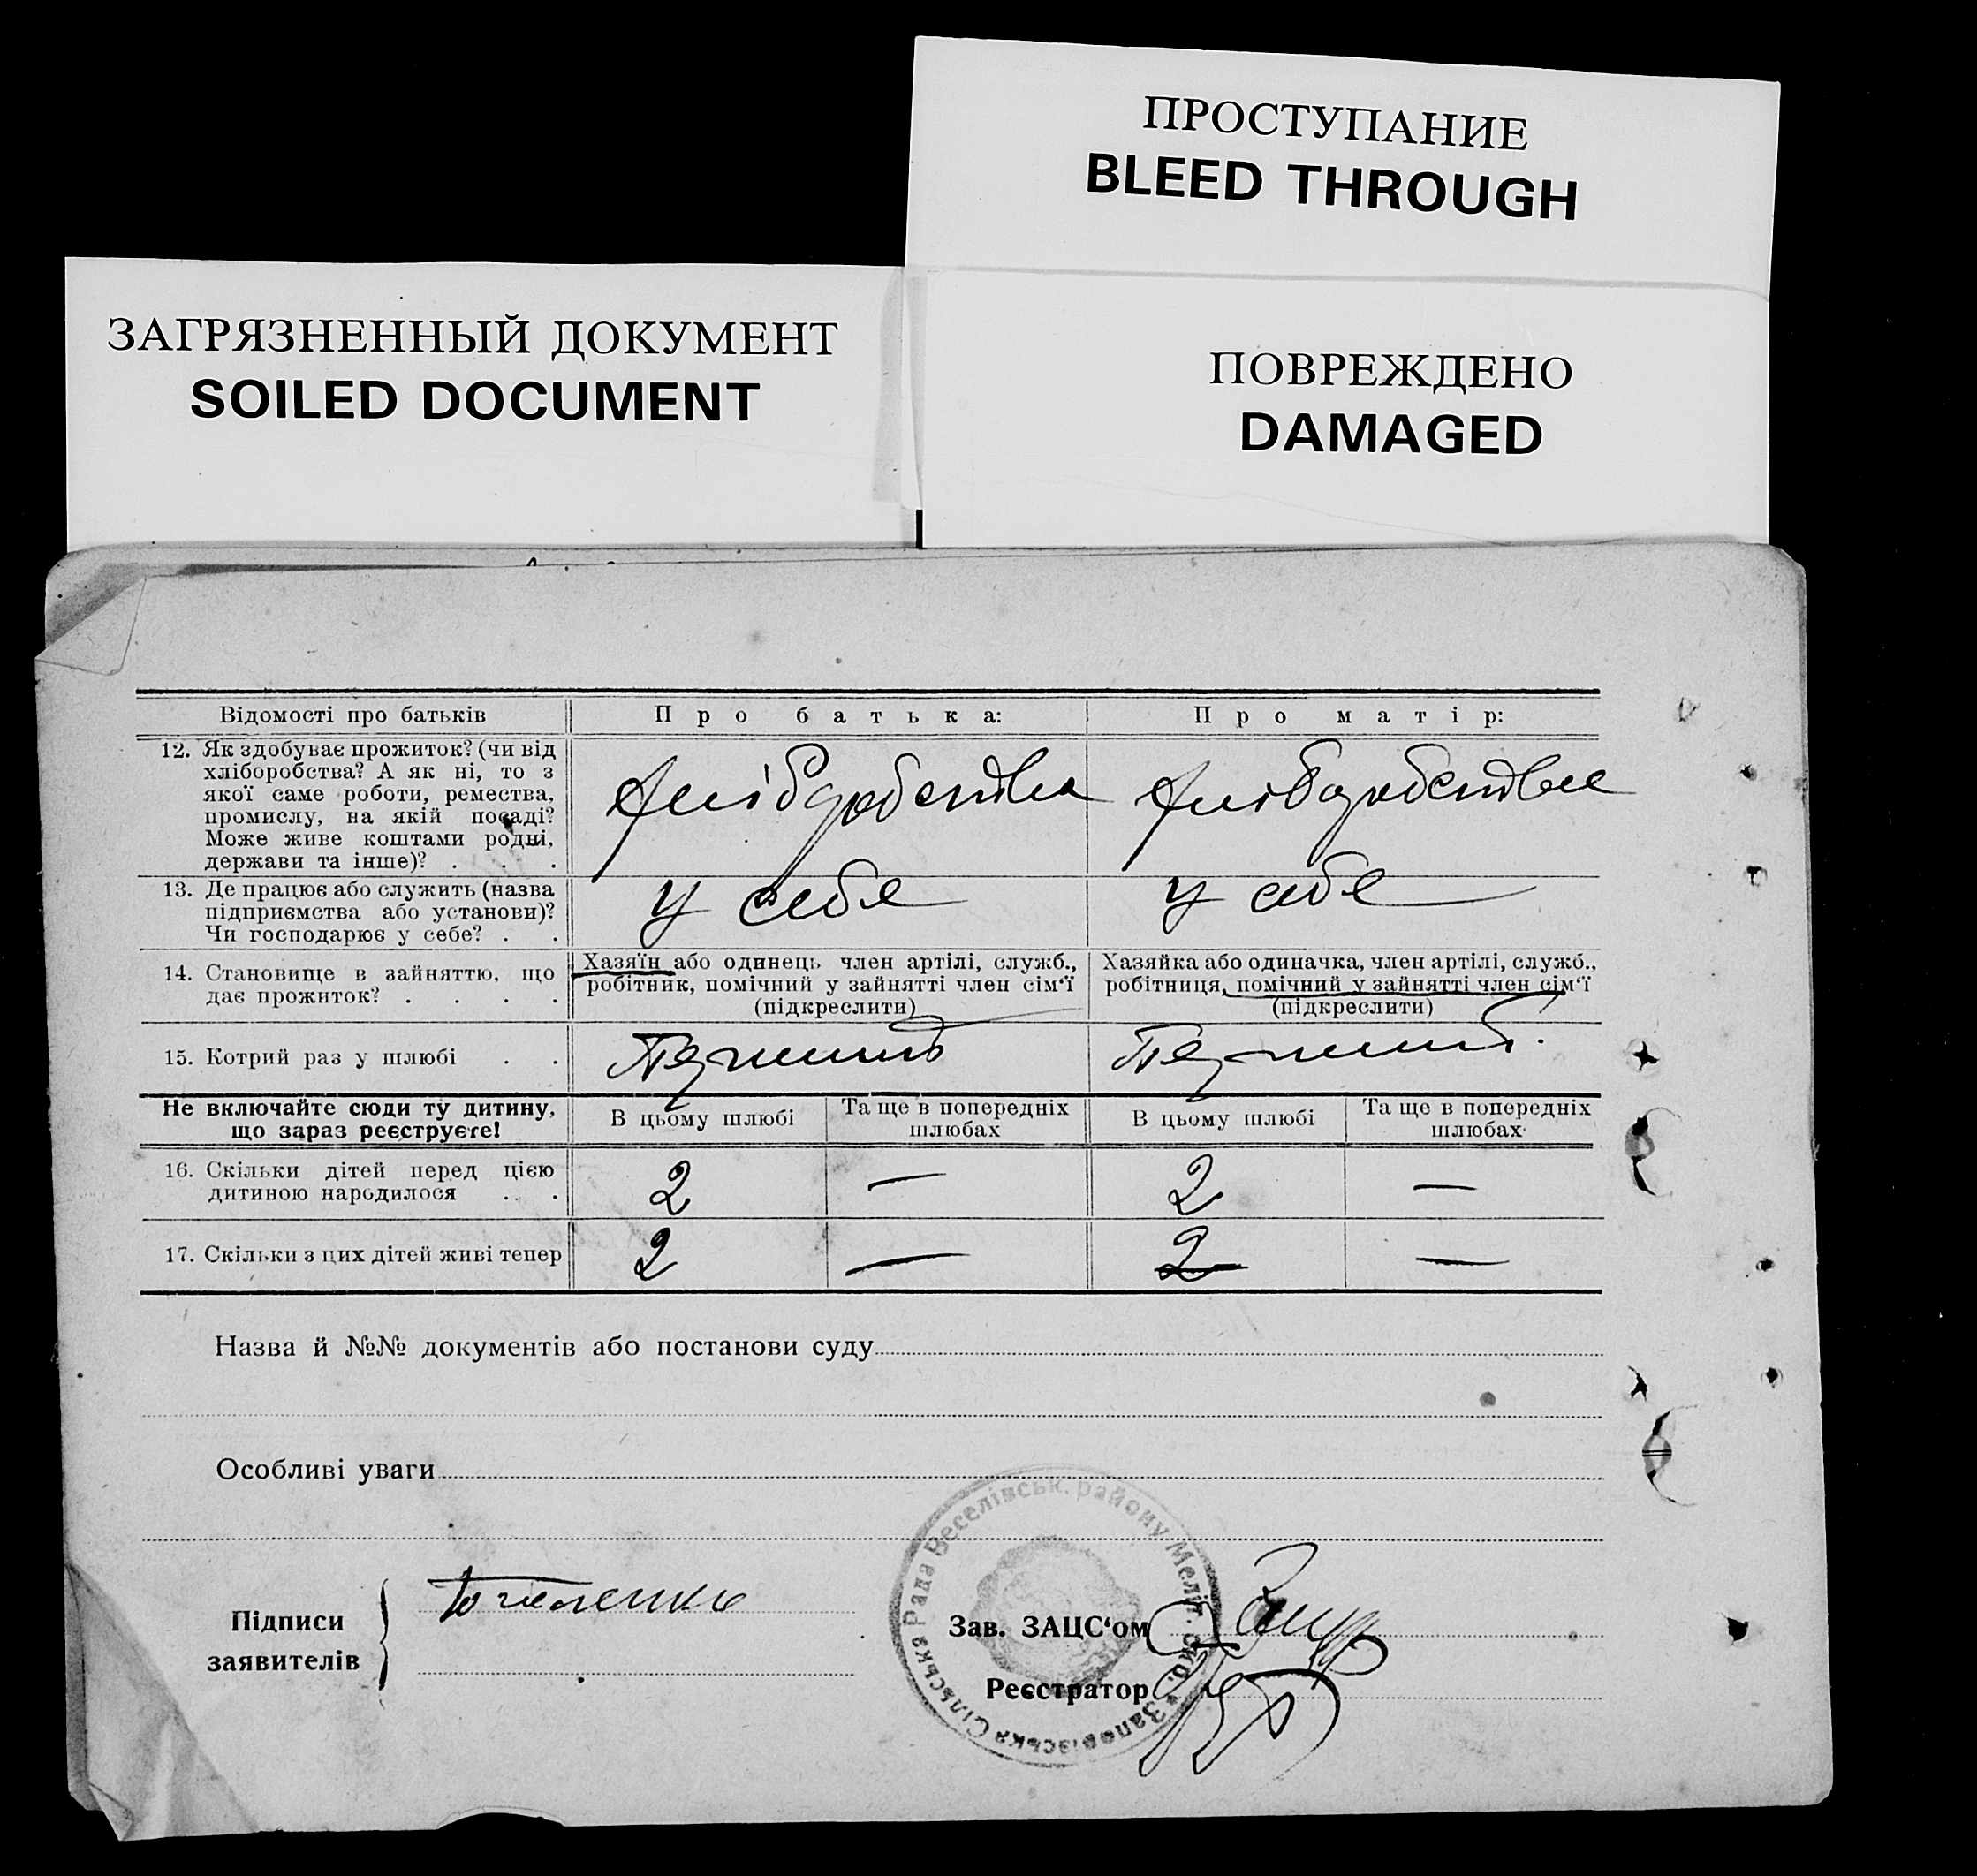 ПРОСТУПАНИЕ
BLEED THROUGH
ЗАГРЯЗНЕННЫЙ ДОКУМЕНТ
SOILED DOCUMENT
ПОВРЕЖДЕНО
DAMAGED
Відомості про батьків
Про батька:
Про матір:
12. Як здобуває прожиток? (чи від
хліборобства? А як ні, то з
якої саме роботи, ремества,
промислу, на якій посаді?
Може живе коштами родні,
держави та інше)? . . .
хліборобства
хліборобства
13. Де працює або служить (назва
підприємства або установи)?
Чи господарює у себе? . .
у себе
у себе
14. Становище в зайняттю, що
дає прожиток? . . . .
Хазяїн або одинець член артілі, служб.,
робітник, помічний у зайнятті член сім'ї
(підкреслити)
Хазяйка або одиначка, член артілі, служб.,
робітниця, помічний у зайнятті член сім'ї
(підкреслити)
15. Котрий раз у шлюбі . .
Первий
Первий
Не включайте сюди ту дитину,
що зараз реєструєте!
В цьому шлюбі
Та ще в попередніх
шлюбах
В цьому шлюбі
Та ще в попередніх
шлюбах
16. Скільки дітей перед цією
дитиною народилося . .
2 — 2 —
17. Скільки з цих дітей живі тепер
2 — 2 —
Назва й №№ документів або постанови суду
Особливі уваги
Підписи
заявителів
Зав. ЗАЦС'ом
Реєстратор
Сільська Рада Веселівськ. району Меліт.